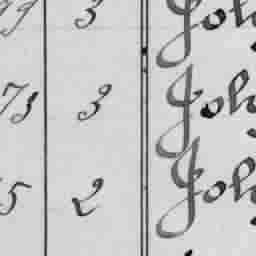 99 3 Joh
73 3 Joh
5 2 Joh